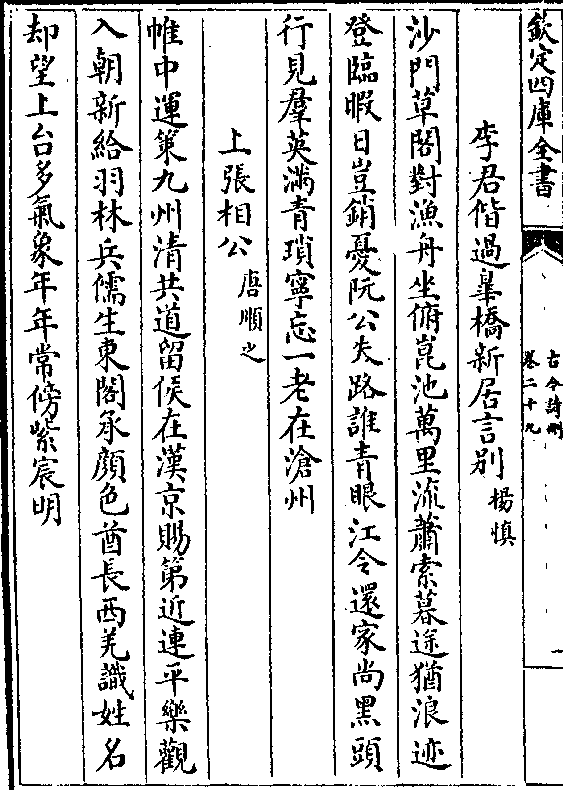 欽定四庫全書
古今詩刪
卷二十九
一
李君偕過皐橋新居言别
楊慎
沙門草閣對漁舟坐俯崑池萬里流蕭索暮途猶浪迹
登臨暇日豈銷憂阮公失路誰青眼江令還家尚黑頭
行見羣英滿青瑣寧忘一老在滄州
上張相公
唐順之
帷中運策九州清共道留侯在漢京賜第近連平樂觀
入朝新給羽林兵儒生東閣承顔色酋長西羌識姓名
却望上台多氣象年年常傍紫宸明